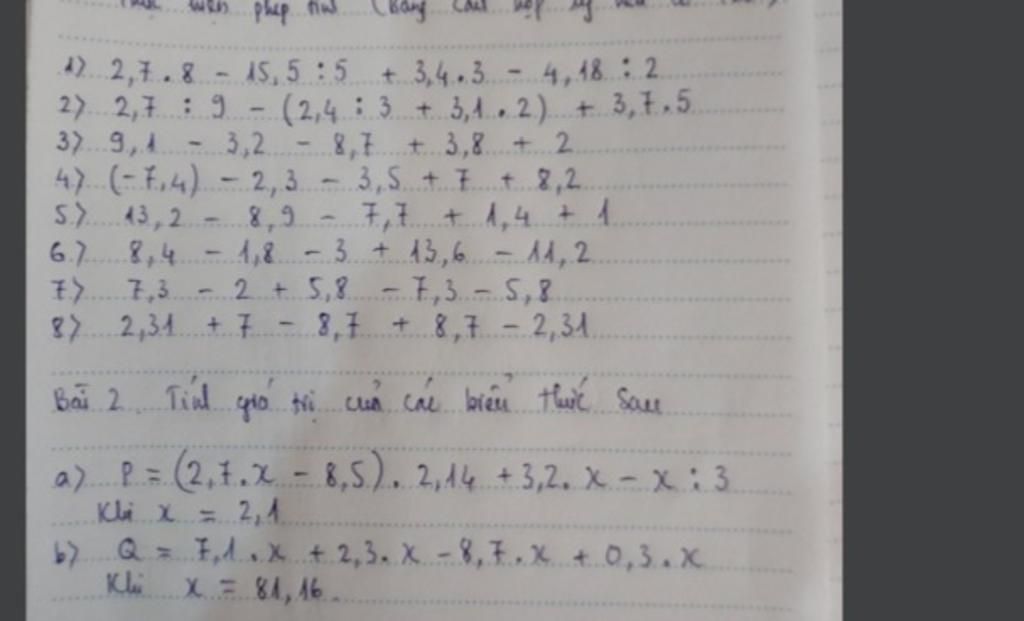 phép tính (Bằng
1) 2,7.8 - 15,5 : 5 + 3,4.3 - 4,18 : 2
2) 2,7 : 9 - (2,4 : 3 + 3,1.2) + 3,7.5
3) 9,1 - 3,2 - 8,7 + 3,8 + 2
4) (-7,4) - 2,3 - 3,5 + 7 + 8,2
5) 13,2 - 8,9 - 7,7 + 1,4 + 1
6) 8,4 - 1,8 - 3 + 13,6 - 11,2
7) 7,3 - 2 + 5,8 - 7,3 - 5,8
8) 2,31 + 7 - 8,7 + 8,7 - 2,31
Bài 2. Tính giá trị của các biểu thức sau
a) P = (2,7.x - 8,5). 2,14 + 3,2.x - x : 3
Khi x = 2,1
b) Q = 7,1.x + 2,3.x - 8,7.x + 0,3.x
Khi x = 81,16.